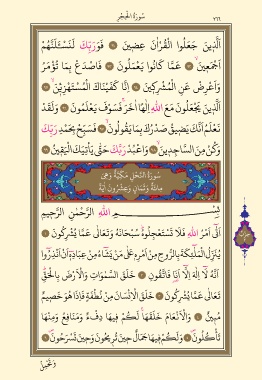 سُورَةُ الْحِجْرِ ٢٦٦
الَّذِينَ جَعَلُوا الْقُرْاٰنَ عِضِينَ ﴿٩١﴾ فَوَرَبِّكَ لَنَسْـَٔلَنَّهُمْ
اَجْمَعِينَ ﴿٩٢﴾ عَمَّا كَانُوا يَعْمَلُونَ ﴿٩٣﴾ فَاصْدَعْ بِمَا تُؤْمَرُ
وَاَعْرِضْ عَنِ الْمُشْرِكِينَ ﴿٩٤﴾ اِنَّا كَفَيْنَاكَ الْمُسْتَهْزِء۪ينَ ﴿٩٥﴾
اَلَّذِينَ يَجْعَلُونَ مَعَ اللّٰهِ اِلٰهًا اٰخَرَ فَسَوْفَ يَعْلَمُونَ ﴿٩٦﴾ وَلَقَدْ
نَعْلَمُ اَنَّكَ يَضِيقُ صَدْرُكَ بِمَا يَقُولُونَ ﴿٩٧﴾ فَسَبِّحْ بِحَمْدِ رَبِّكَ
وَكُنْ مِنَ السَّاجِدِينَ ﴿٩٨﴾ وَاعْبُدْ رَبَّكَ حَتّٰى يَأْتِيَكَ الْيَقِينُ ﴿٩٩﴾
سُورَةُ النَّحْلِ مَكِّيَّةٌ وَهِىَ
مِائَةٌ وَثَمَانٍ وَعِشْرُونَ اٰيَةً
بِسْمِ اللّٰهِ الرَّحْمٰنِ الرَّحِيمِ
اَتٰى اَمْرُ اللّٰهِ فَلَا تَسْتَعْجِلُوهُ سُبْحَانَهُ وَتَعَالٰى عَمَّا يُشْرِكُونَ ﴿١﴾
يُنَزِّلُ الْمَلٰٓئِكَةَ بِالرُّوحِ مِنْ اَمْرِهِ عَلٰى مَنْ يَشَٓاءُ مِنْ عِبَادِهِ اَنْ اَنْذِرُٓوا
اَنَّهُ لَٓا اِلٰهَ اِلَّٓا اَنَا فَاتَّقُونِ ﴿٢﴾ خَلَقَ السَّمٰوَاتِ وَالْاَرْضَ بِالْحَقِّ
تَعَالٰى عَمَّا يُشْرِكُونَ ﴿٣﴾ خَلَقَ الْاِنْسَانَ مِنْ نُطْفَةٍ فَاِذَا هُوَ خَصِيمٌ
مُبِينٌ ﴿٤﴾ وَالْاَنْعَامَ خَلَقَهَا لَكُمْ فِيهَا دِفْءٌ وَمَنَافِعُ وَمِنْهَا
تَأْكُلُونَ ﴿٥﴾ وَلَكُمْ فِيهَا جَمَالٌ حِينَ تُرِيحُونَ وَحِينَ تَسْرَحُونَ ﴿٦﴾
وَتَحْمِلُ